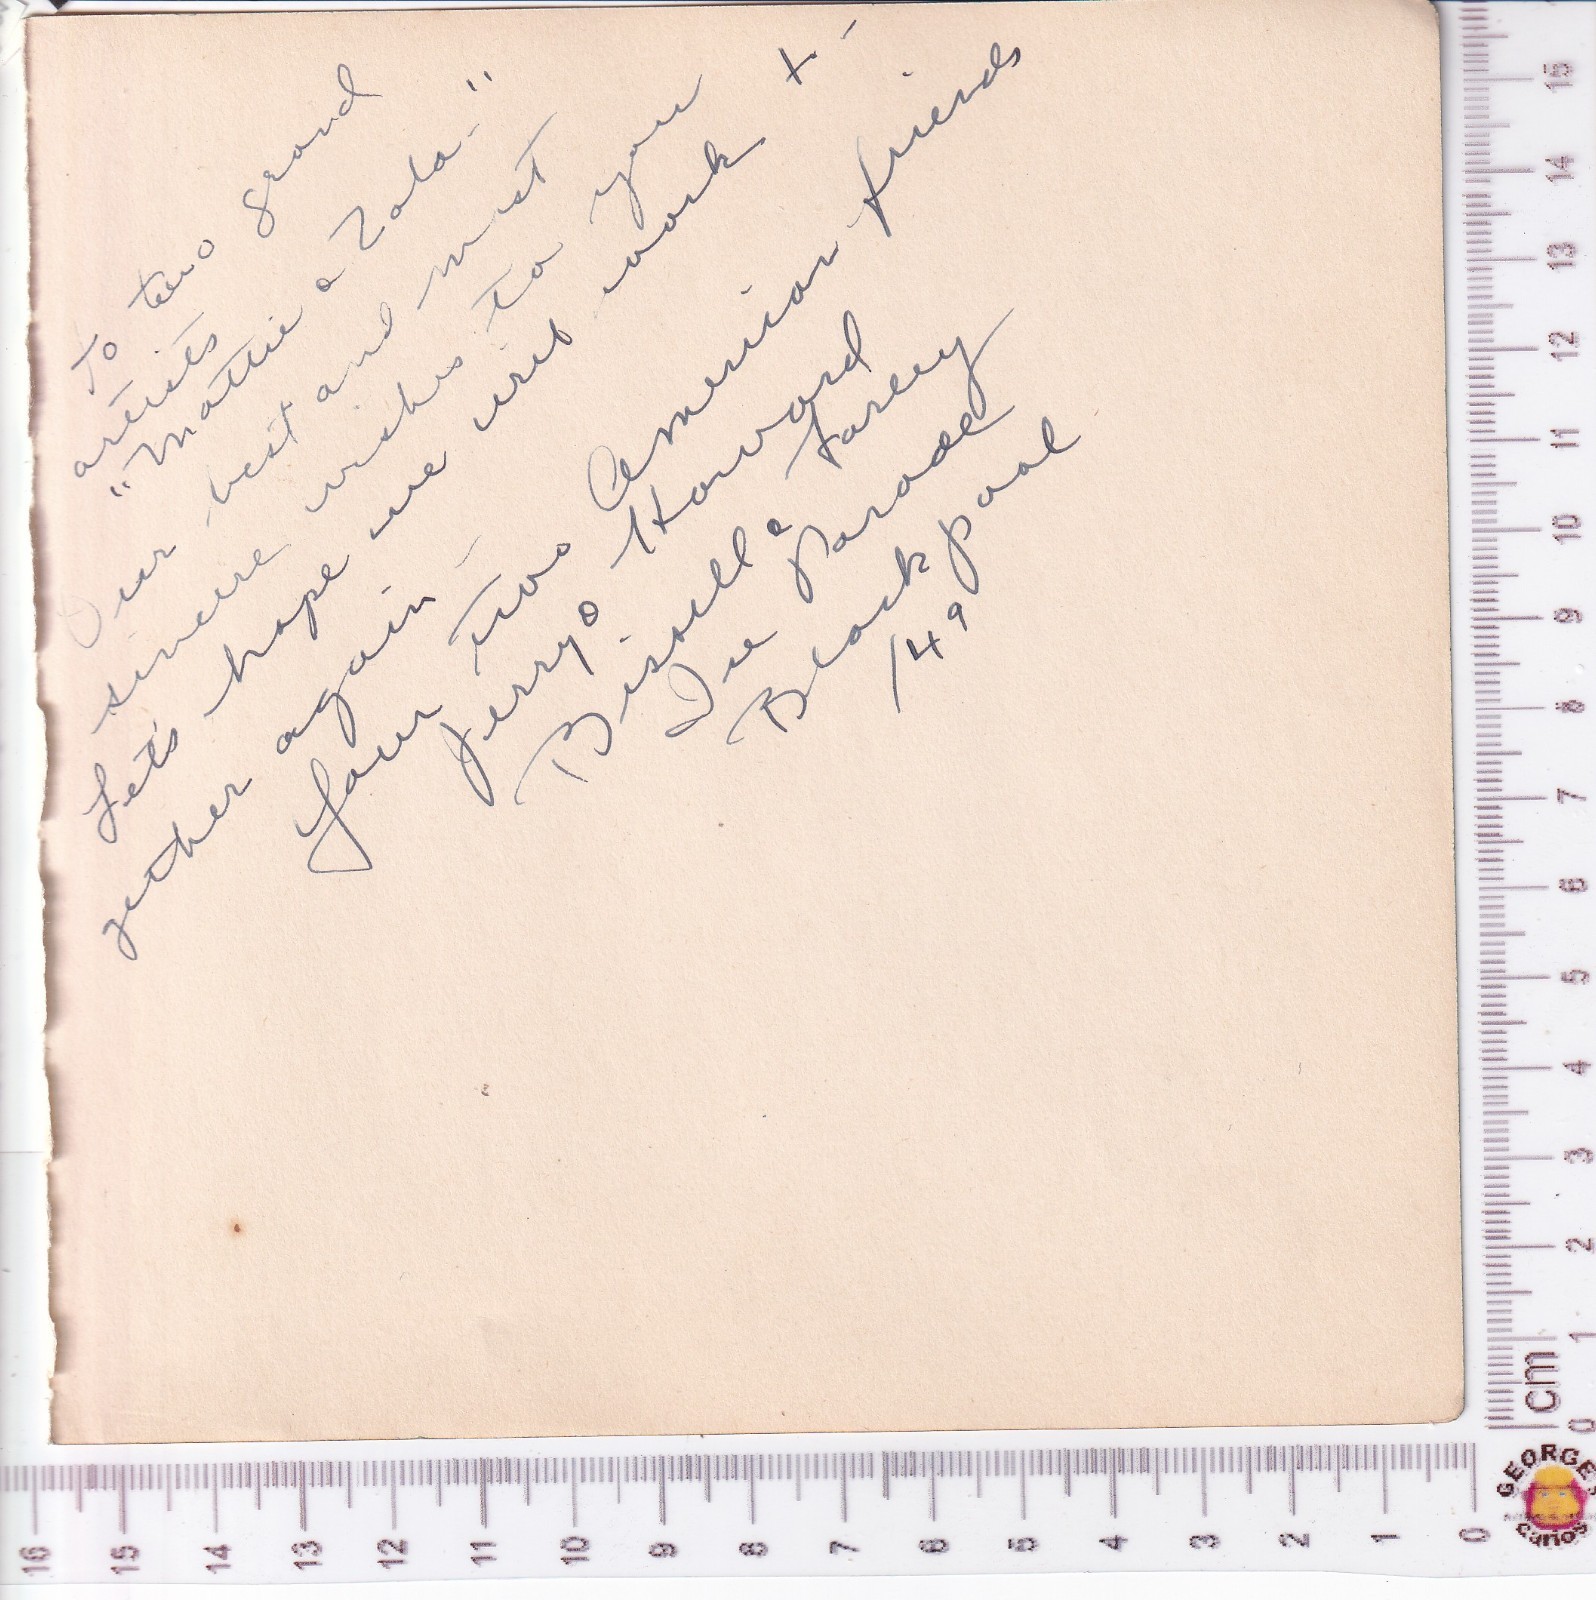 To two grand
artists
"Mattie & Zola-"
Our best and most
sincere wishes to you +-
Lets hope we will work
gether again -
Your two American friends
Jerry & Howard
Bissell & Farley
Ice Parade
Blackpool
/49
15
14
13
12
11
10
9
8
7
6
5
4
3
2
1
0
cm
16 15 14 13 12 11 10 9 8 7 6 5 4 3 2 1 0
GEORGES
curios